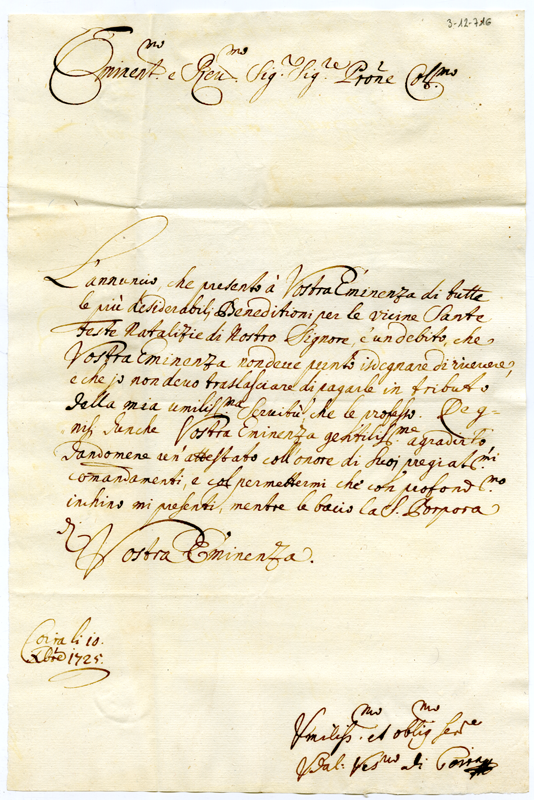 3-12-746
Eminent.mo e Reu.mo Sig.r Sig.re Prone Coll.mo
L'annuncio, che presento à Vostra Eminenza di tutte
le più desiderabili Beneditioni per le vicine Sante
Feste Natalizie di Nostro Signore, è un debito, che
Vostra Eminenza non deve punto isdegnare di ricevere,
e che jo non devo traslasciare di pagarle in tributo
dalla mia umiliss.ma Servitù, che le professo. Deg-
nisi dunche Vostra Eminenza gentiliss.me agradirlo
dandomene un'attestato coll'onore di Suoi pregiat.mi
comandamenti, e col permettermi che con profond.mo
inchino mi presenti, mentre le bacio la S. Porpora
di
Vostra Eminenza.
Coira li 10
Xbre 1725.
Umiliss.mo et obblig.mo Ser.e
Udal. Ves.vo di Coira